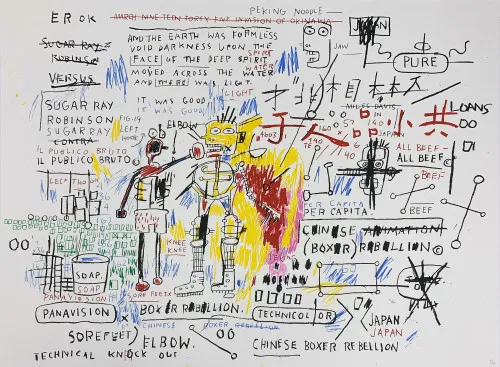 EROK
MARCH NINETEEN FORTY FIVE INVASION OF OKINAWA
PEKING NOODLE—
AND THE EARTH WAS FORMLESS
VOID DARKNESS UPON THE
FACE OF THE DEEP SPIRIT
SPIRIT
MOVED ACROSS THE WATER
WATER
AND THERE WAS LIGHT
LIGHT
IT WAS GOOD
IT WAS GOOD
SUGAR RAY
ROBINSON
VERSUS
SUGAR RAY
ROBINSON
SUGAR RAY
CONTRA
IL PUBLICO BRUTO
IL PUBLICO BRUTO©
LEFT
LEFT
HOOK
ELBOW
JAW
JAPAN
PURE
MILES DAVIS
人品小共
LOANS
ALL BEEF—
ALL BEEF
BEEF
BEEF
PER CAPITA
PER CAPITA.
CHINESE ANIMATION
(BOXER) REBELLION©
KNEE
KNEE
SOAP.
SOAP
PANAVISION
SORE FEET
PANAVISION
X
BOXER REBELLION.
CHINESE BOXER REBELLION
TECHNICOLOR
JAPAN
JAPAN
SOREFEET)
ELBOW.
TECHNICAL KNOCK OUT
CHINESE BOXER REBELLION